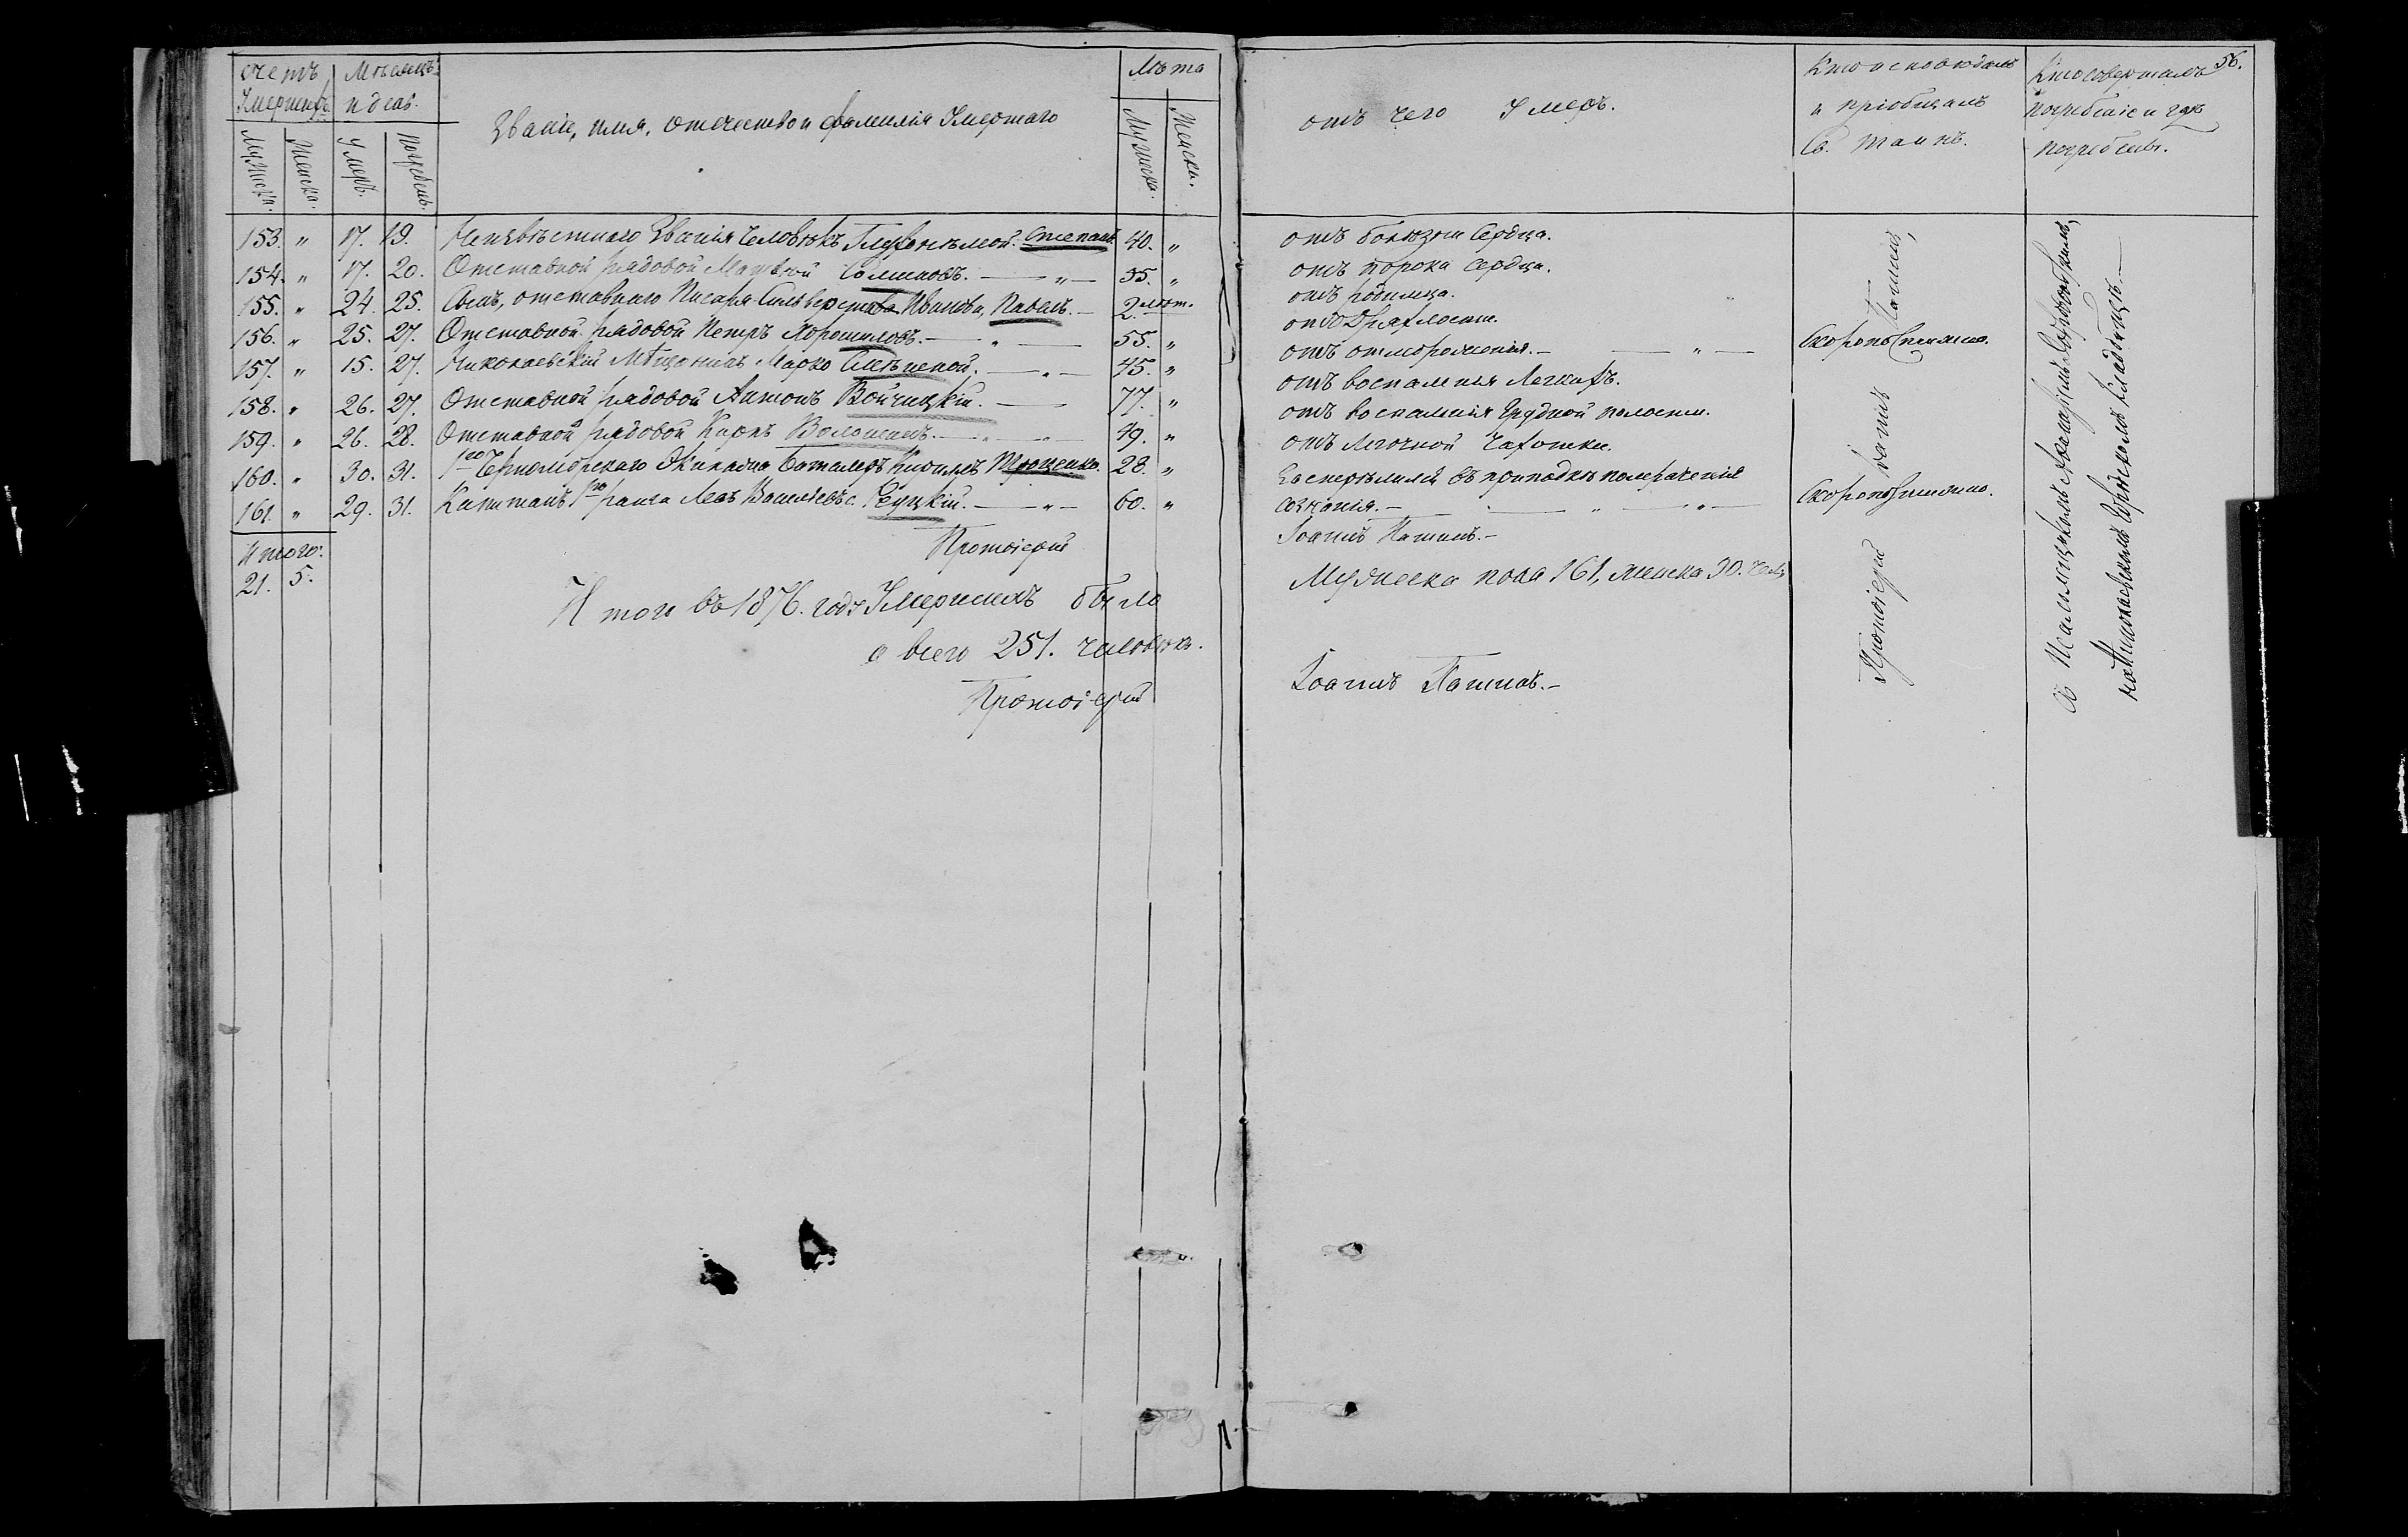 Счетъ Умершихъ. Мѣсяцъ и день. Званіе, имя, отчество и фамилія Умершаго Лѣта
Мужеска. Женска. Умеръ. Погребенъ. Мужеска. Женска.
153. „ 17. 19. Неизвѣстнаго Званія человѣкъ Глухонѣмой. Степанъ. 40. „
154. „ 17. 20. Отставной рядовой Матвѣй — „ — 35. „
155. „ 24. 25. Сынъ, отставнаго Писаря Сильверства Иванова, Павелъ. — 2. лѣт.
156. „ 25. 27. Отставной рядовой Петръ Хорошиловъ. — „ — 55. „
157. „ 15. 27. Николаевскій Мѣщанинъ Марко — „ — 45. „
158. „ 26. 27. Отставной рядовой Антонъ Войчицкій. — 77. „
159. „ 26. 28. Отставной рядовой Карпъ Волошинъ. — „ — „ — 49. „
160. „ 30. 31. 1го Черноморскаго Экипажа Баталеръ Кирилъ Троценко. 28. „
161. „ 29. 31. Капитанъ 1го ранга Левъ Васильевъ с. — „ — 60. „
Итого:
21. 5.
Протоіерей
Итого въ 1876. году Умершихъ было
а всего 251. человѣкъ.
Протоіерей
56.
отъ чего Умеръ. Кто исповѣдалъ и пріобщалъ Св. Таинъ. Кто совершалъ погребеніе и гдѣ погребенъ.
отъ болѣзни Сердца.
отъ порока Сердца.
отъ родимца.
отъ Дряхлости.
отъ отмороженія. — — „ — Скоропостижно.
отъ воспаленія Легкихъ.
отъ воспаленія Грудной полости.
отъ Легочной Чахотки.
Застрѣлился въ припадкѣ помраченія
сознанія. — — „ — „ — Скоропостижно.
Іоаннъ —
Мужеска пола 161, женска 90. чел.
Іоаннъ —
Протоіерей Іоаннъ
Съ Псаломщикомъ
на Николаевскомъ Городскомъ Кладбищѣ. —